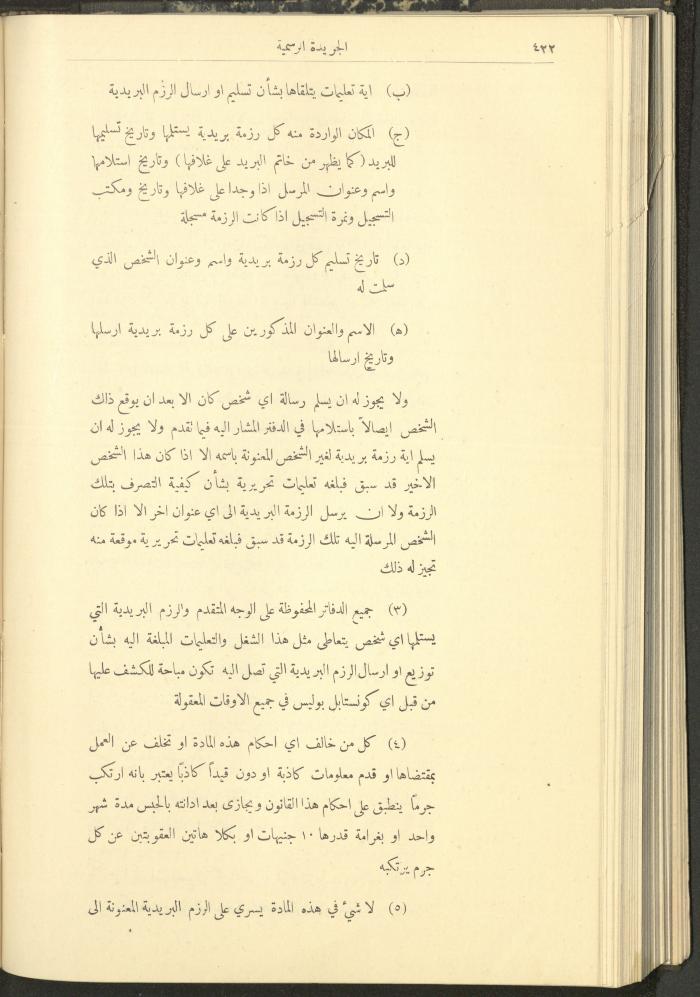 ٤٢٢
الجريدة الرسمية
(ب) اية تعليمات يتلقاها بشأن تسليم او ارسال الرزم البريدية
(ج) المكان الواردة منه كل رزمة بريدية يستلمها وتاريخ تسليمها
للبريد (كما يظهر من خاتم البريد على غلافها) وتاريخ استلامها
واسم وعنوان المرسل اذا وجدا على غلافها وتاريخ ومكتب
التسجيل ونمرة التسجيل اذا كانت الرزمة مسجلة
(د) تاريخ تسليم كل رزمة بريدية واسم وعنوان الشخص الذي
سلمت له
(ه) الاسم والعنوان المذكورين على كل رزمة بريدية ارسلها
وتاريخ ارسالها
ولا يجوز له ان يسلم رسالة اي شخص كان الا بعد ان يوقع ذاك
الشخص ايصالاً باستلامها في الدفتر المشار اليه فيما تقدم ولا يجوز له ان
يسلم اية رزمة بريدية لغير الشخص المعنونة باسمه الا اذا كان هذا الشخص
الاخير قد سبق فبلغه تعليمات تحريرية بشأن كيفية التصرف بتلك
الرزمة ولا ان يرسل الرزمة البريدية الى اي عنوان اخر الا اذا كان
الشخص المرسلة اليه تلك الرزمة قد سبق فبلغه تعليمات تحريرية موقعة منه
تجيز له ذلك
(٣) جميع الدفاتر المحفوظة على الوجه المتقدم والرزم البريدية التي
يستلمها اي شخص يتعاطى مثل هذا الشغل والتعليمات المبلغة اليه بشأن
توزيع او ارسال الرزم البريدية التي تصل اليه تكون مباحة للكشف عليها
من قبل اي كونستابل بوليس في جميع الاوقات المعقولة
(٤) كل من خالف اي احكام هذه المادة او تخلف عن العمل
بمقتضاها او قدم معلومات كاذبة او دون قيداً كاذبًا يعتبر بانه ارتكب
جرمًا ينطبق على احكام هذا القانون ويجازى بعد ادانته بالحبس مدة شهر
واحد او بغرامة قدرها ١٠ جنيهات او بكلا هاتين العقوبتين عن كل
جرم يرتكبه
(٥) لا شيء في هذه المادة يسري على الرزم البريدية المعنونة الى